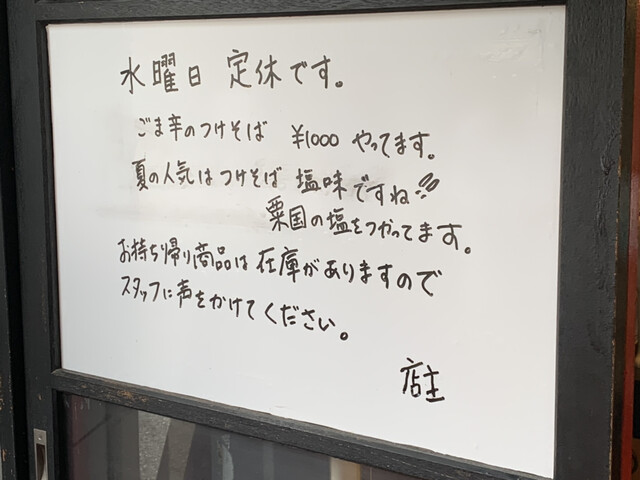 水曜日 定休です。
ごま辛のつけそば ¥1000 やってます。
夏の人気はつけそば 塩味ですね!!
粟国の塩をつかってます。
お持ち帰り商品は在庫がありますので
スタッフに声をかけてください。
店主